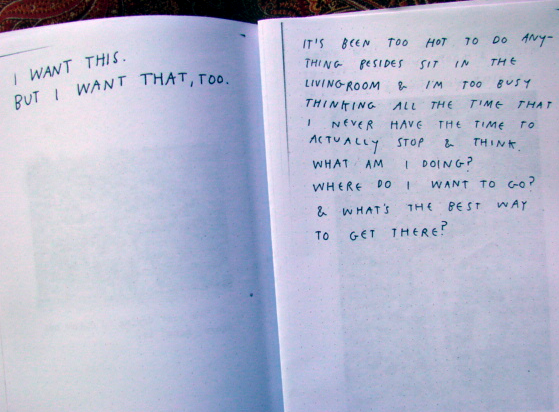 I WANT THIS.
BUT I WANT THAT, TOO.
IT'S BEEN TOO HOT TO DO ANY-
THING BESIDES SIT IN THE
LIVINGROOM & I'M TOO BUSY
THINKING ALL THE TIME THAT
I NEVER HAVE THE TIME TO
ACTUALLY STOP & THINK.
WHAT AM I DOING?
WHERE DO I WANT TO GO?
& WHAT'S THE BEST WAY
TO GET THERE?